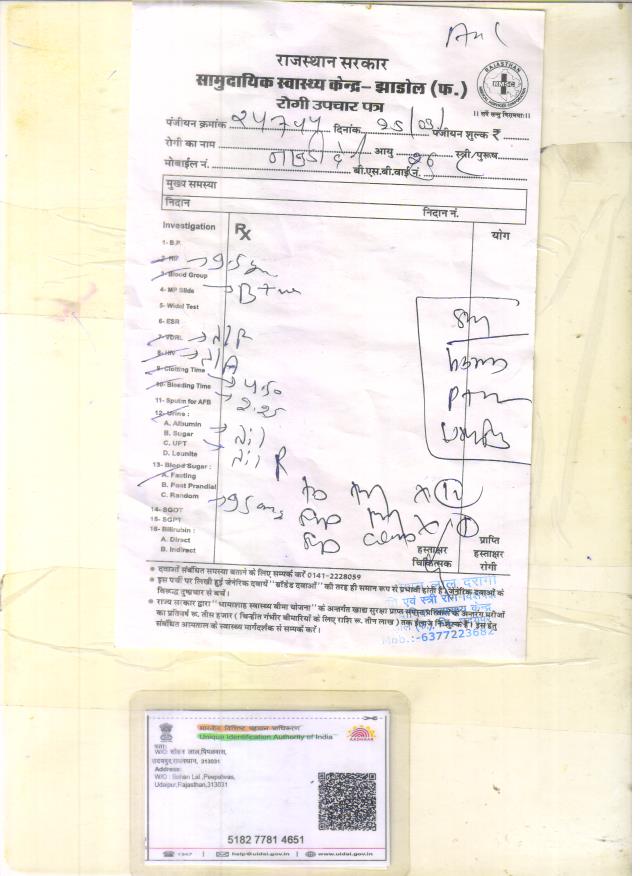 Anc
राजस्थान सरकार
सामुदायिक स्वास्थ्य केन्द्र– झाडोल (फ.)
रोगी उपचार पत्र
RAJASTHAN
RMSC
MEDICAL SERVICES CORPORATION
।। सर्वे सन्तु निरामयाः ।।
पंजीयन क्रमांक २४७४४ दिनांक २५/03/ पंजीयन शुल्क ₹
रोगी का नाम आयु २६ स्त्री/पुरूष
मोबाईल नं. बी.एस.बी.वाई नं.
मुख्य समस्या
निदान निदान नं.
Investigation Rx योग
1- B.P.
2- HB 9.5 gm
3- Blood Group
4- MP Slide B+ve
5- Widal Test
6- ESR
7- VDRL N/R
8- HIV N/R
9- Clotting Time
10- Bleeding Time 4.50
11- Sputm for AFB 2.25
12- Urine :
A. Albumin
B. Sugar Nil
C. UPT
D. Leunite Nil
13- Blood Sugar :
A. Fasting
B. Post Prandial
C. Random 95 mg
14- SGOT
15- SGPT
16- Bilirubin :
A. Direct
B. Indirect
हस्ताक्षर चिकित्सक
प्राप्ति हस्ताक्षर रोगी
● दवाओं संबंधित समस्या बताने के लिए सम्पर्क करें 0141-2228059
● इस पर्ची पर लिखी हुई जेनेरिक दवायें "ब्रांडेड दवाओं" की तरह ही समान रूप से प्रभावी होती है। जेनेरिक दवाओं के
विरूद्ध दुष्प्रचार से बचें।
● राज्य सरकार द्वारा "भामाशाह स्वास्थ्य बीमा योजना" के अन्तर्गत खाद्य सुरक्षा प्राप्त परिवारों के अन्तरंग मरीजों
का प्रतिवर्ष रू. तीस हजार ( चिन्हीत गंभीर बीमारियों के लिए राशि रू. तीन लाख ) तक ईलाज निःशुल्क है। इस हेतु
संबंधित अस्पताल के स्वास्थ्य मार्गदर्शक से सम्पर्क करें।
लाल दरांगी
एवं स्त्री रोग विशेषज्ञ
स्वास्थ्य केन्द्र
Mob.:-6377223682
भारतीय विशिष्ट पहचान प्राधिकरण
Unique Identification Authority of India
AADHAAR
पता:
W/O: सोहन लाल,पिपलवास,
उदयपुर,राजस्थान, 313031
Address:
W/O : Sohan Lal ,Peepalwas,
Udaipur,Rajasthan,313031
5182 7781 4651
1947 | help@uidai.gov.in | www.uidai.gov.in